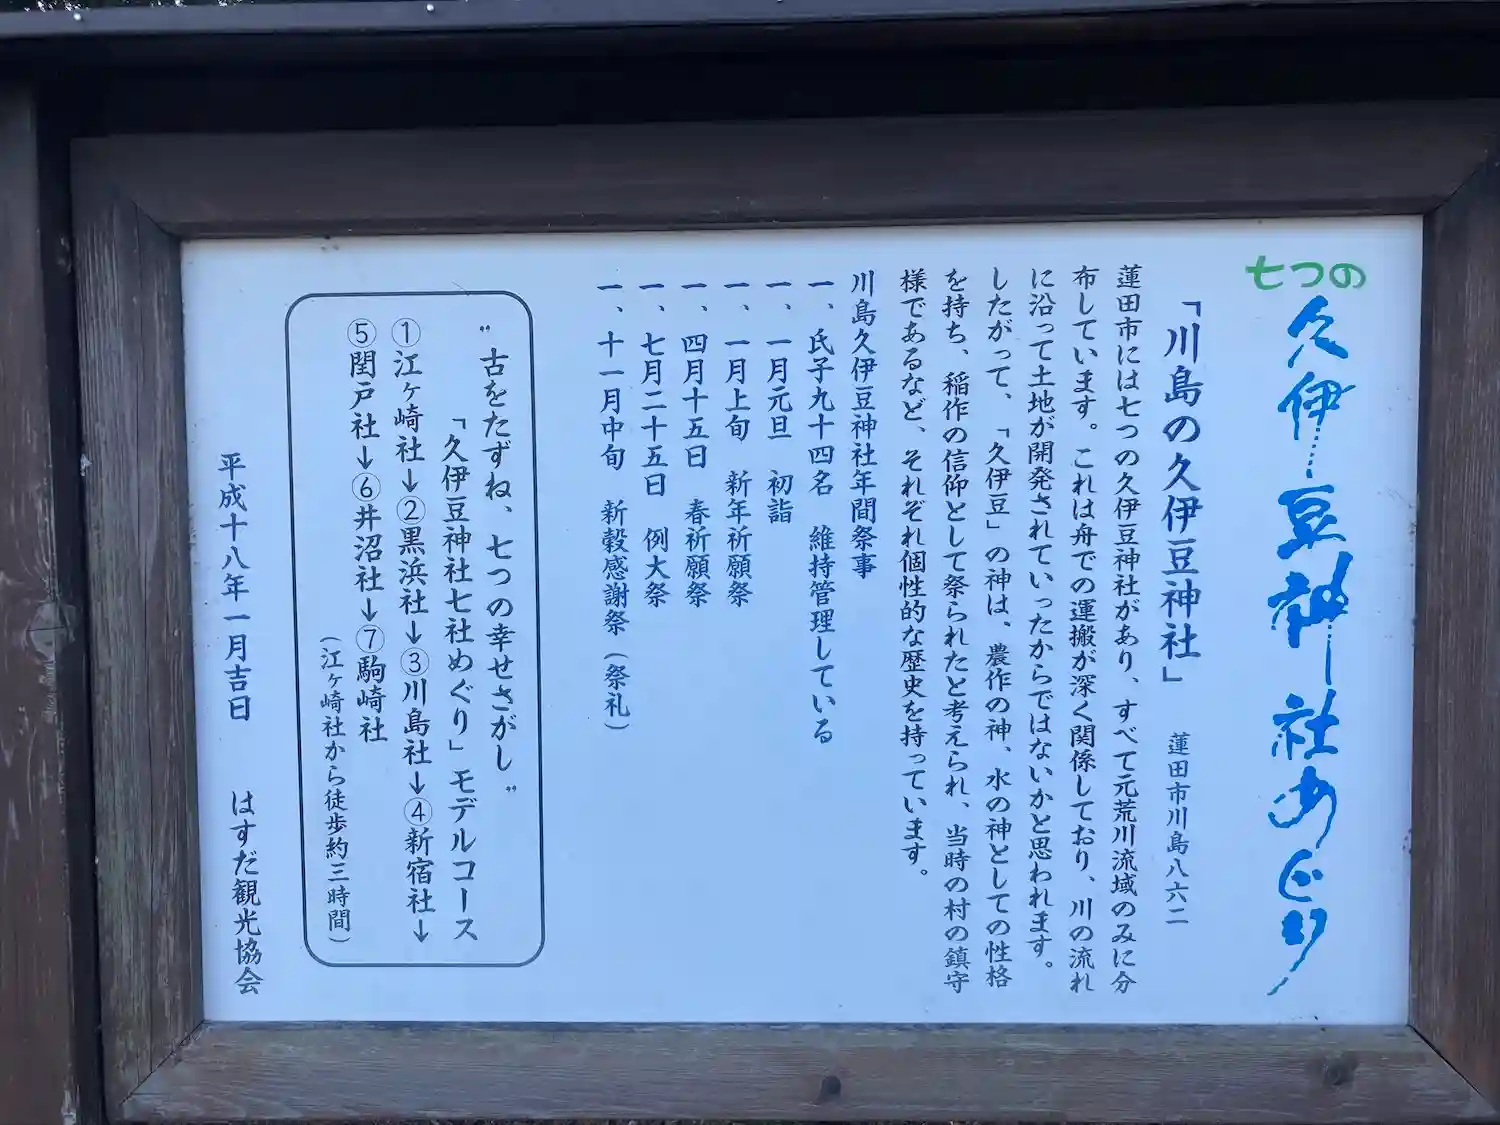 七つの
久伊豆神社めぐり
「川島の久伊豆神社」 蓮田市川島八六二
蓮田市には七つの久伊豆神社があり、すべて元荒川流域のみに分
布しています。これは舟での運搬が深く関係しており、川の流れ
に沿って土地が開発されていったからではないかと思われます。
したがって、「久伊豆」の神は、農作の神、水の神としての性格
を持ち、稲作の信仰として祭られたと考えられ、当時の村の鎮守
様であるなど、それぞれ個性的な歴史を持っています。
川島久伊豆神社年間祭事
一、氏子九十四名 維持管理している
一、一月元旦 初詣
一、一月上旬 新年祈願祭
一、四月十五日 春祈願祭
一、七月二十五日 例大祭
一、十一月中旬 新穀感謝祭（祭礼）
〝古をたずね、七つの幸せさがし〟
「久伊豆神社七社めぐり」モデルコース
①江ヶ崎社→②黒浜社→③川島社→④新宿社→
⑤閏戸社→⑥井沼社→⑦駒崎社
（江ヶ崎社から徒歩約三時間）
平成十八年一月吉日 はすだ観光協会